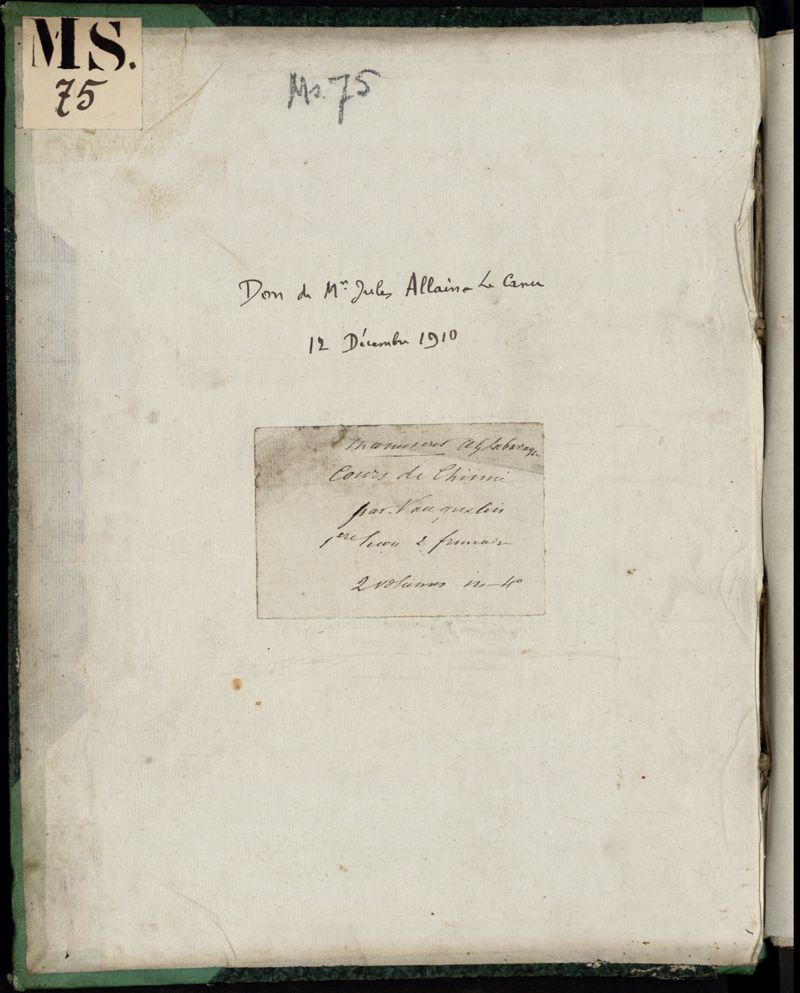 MS.
75
Ms. 75
Don de Mr. Jules Allain-Le Canu
12 Décembre 1910
Manuscrit Labarraque
Cours de Chimie
par Vauquelin
1ere leçon 2 frimaire
2 volumes in-4o